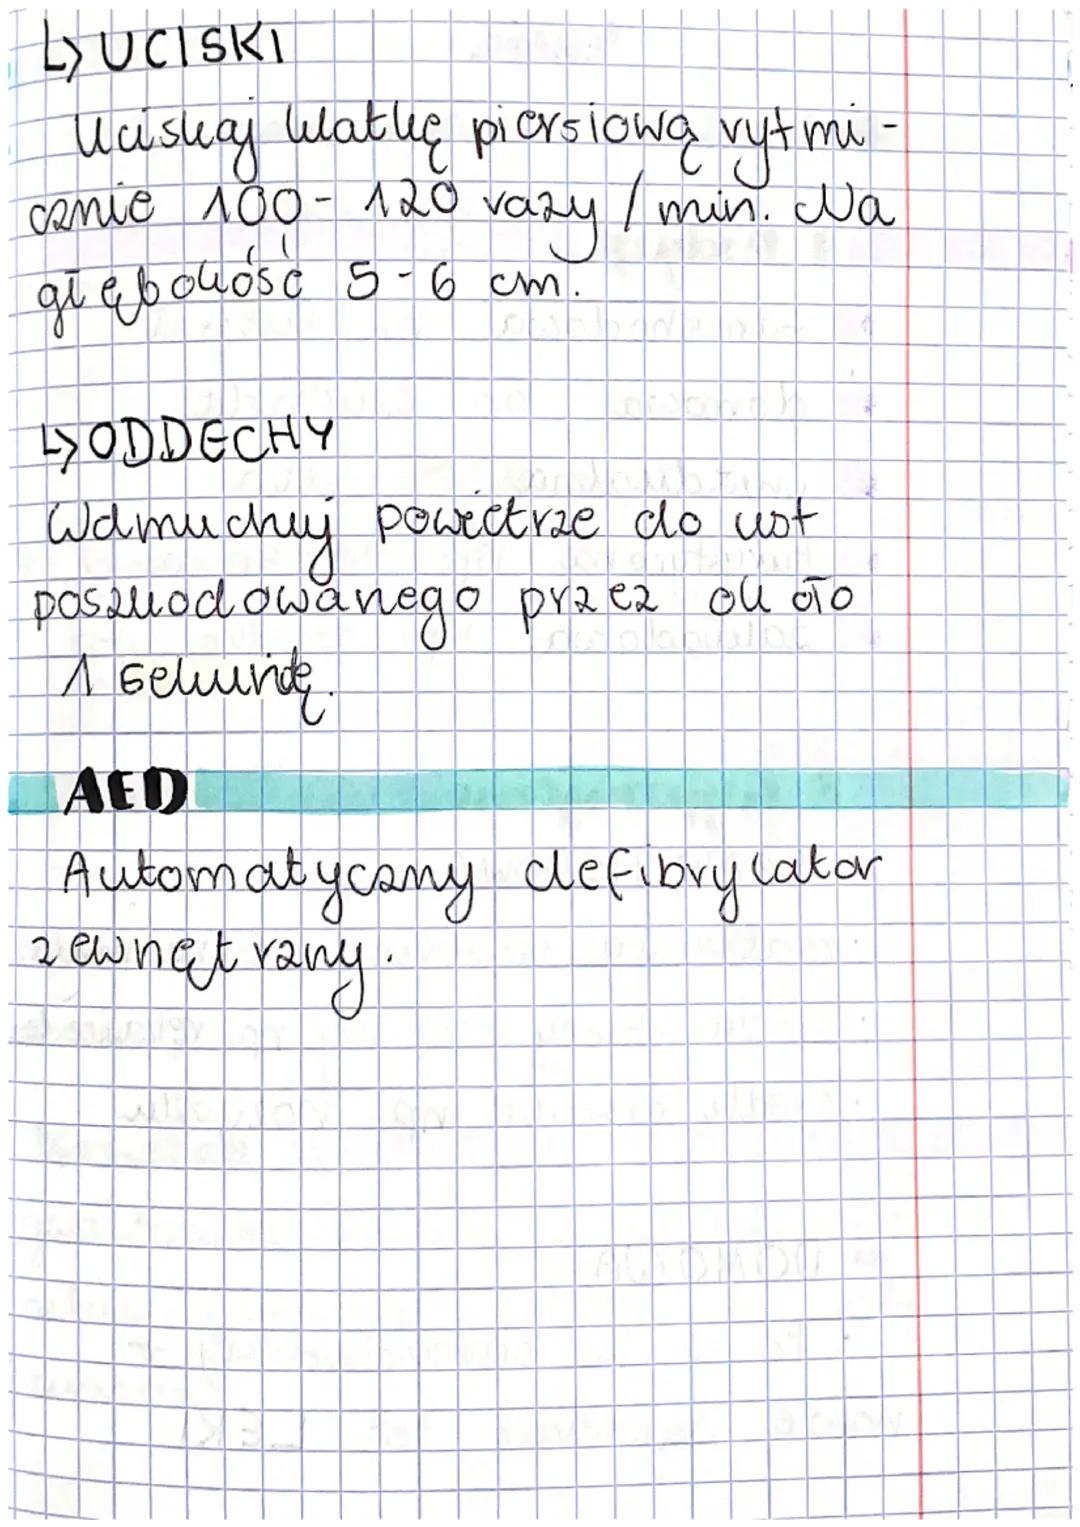 ↳ UCISKI
Uciskaj klatkę piersiową rytmi-
cznie 100-120 razy / min. Na
głębokość 5-6 cm.
↳ ODDECHY
Wdmuchuj powietrze do ust
poszkodowanego przez około
1 sekundę.
AED
Automatyczny defibrylator
zewnętrzny.